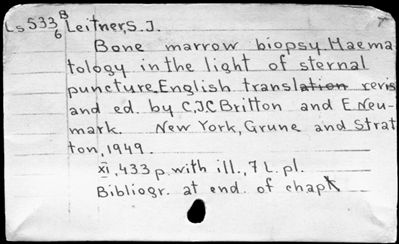 Ls 533 8/6 Leitner, S.J.
Bone marrow biopsy. Haema-
tology in the light of sternal
puncture. English translation revis
and ed. by C.J.C Britton and E. Neu-
mark. New York, Grune and Strat
ton, 1949.
XI, 433 p. with ill., 7 L. pl.
Bibliogr. at end. of chapt